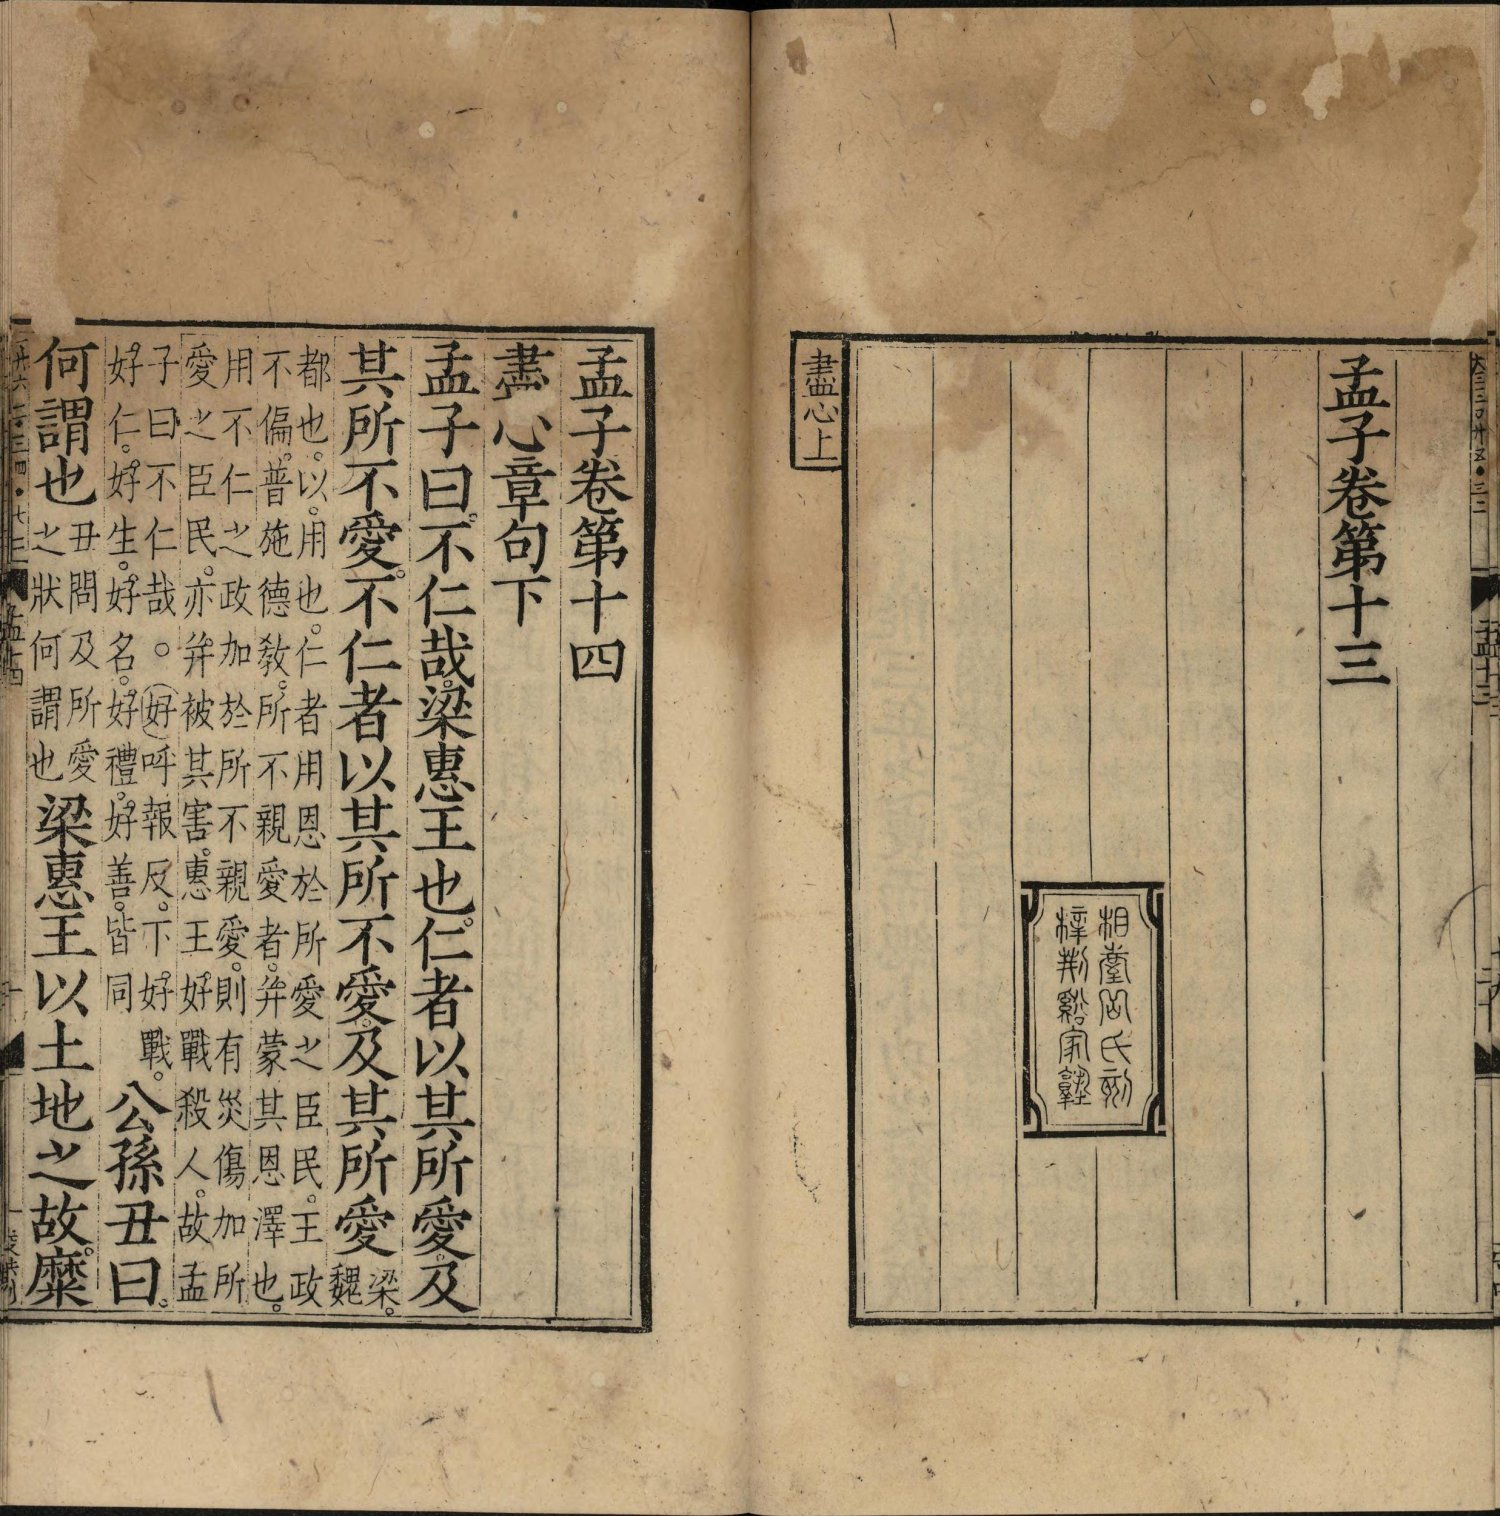 孟十三
孟子卷第十三
相臺岳氏刻
梓荆谿家塾
盡心上
孟子卷第十四
盡心章句下
孟子曰。不仁哉。梁惠王也。仁者以其所愛。及
其所不愛。不仁者以其所不愛。及其所愛
梁。
魏
都也。以。用也。仁者用恩於所愛之臣民。王政
不偏。普施德敎。所不親愛者。并蒙其恩澤也。
用不仁之政加於所不親愛。則有災傷加所
愛之臣民。亦并被其害。惠王好戰殺人。故孟
子曰不仁哉。○好呼報反。下好戰。
好仁。好生。好名。好禮。好善。皆同
公孫丑曰。
何謂也
丑問及所愛
之狀何謂也
梁惠王以土地之故。糜
孟十四